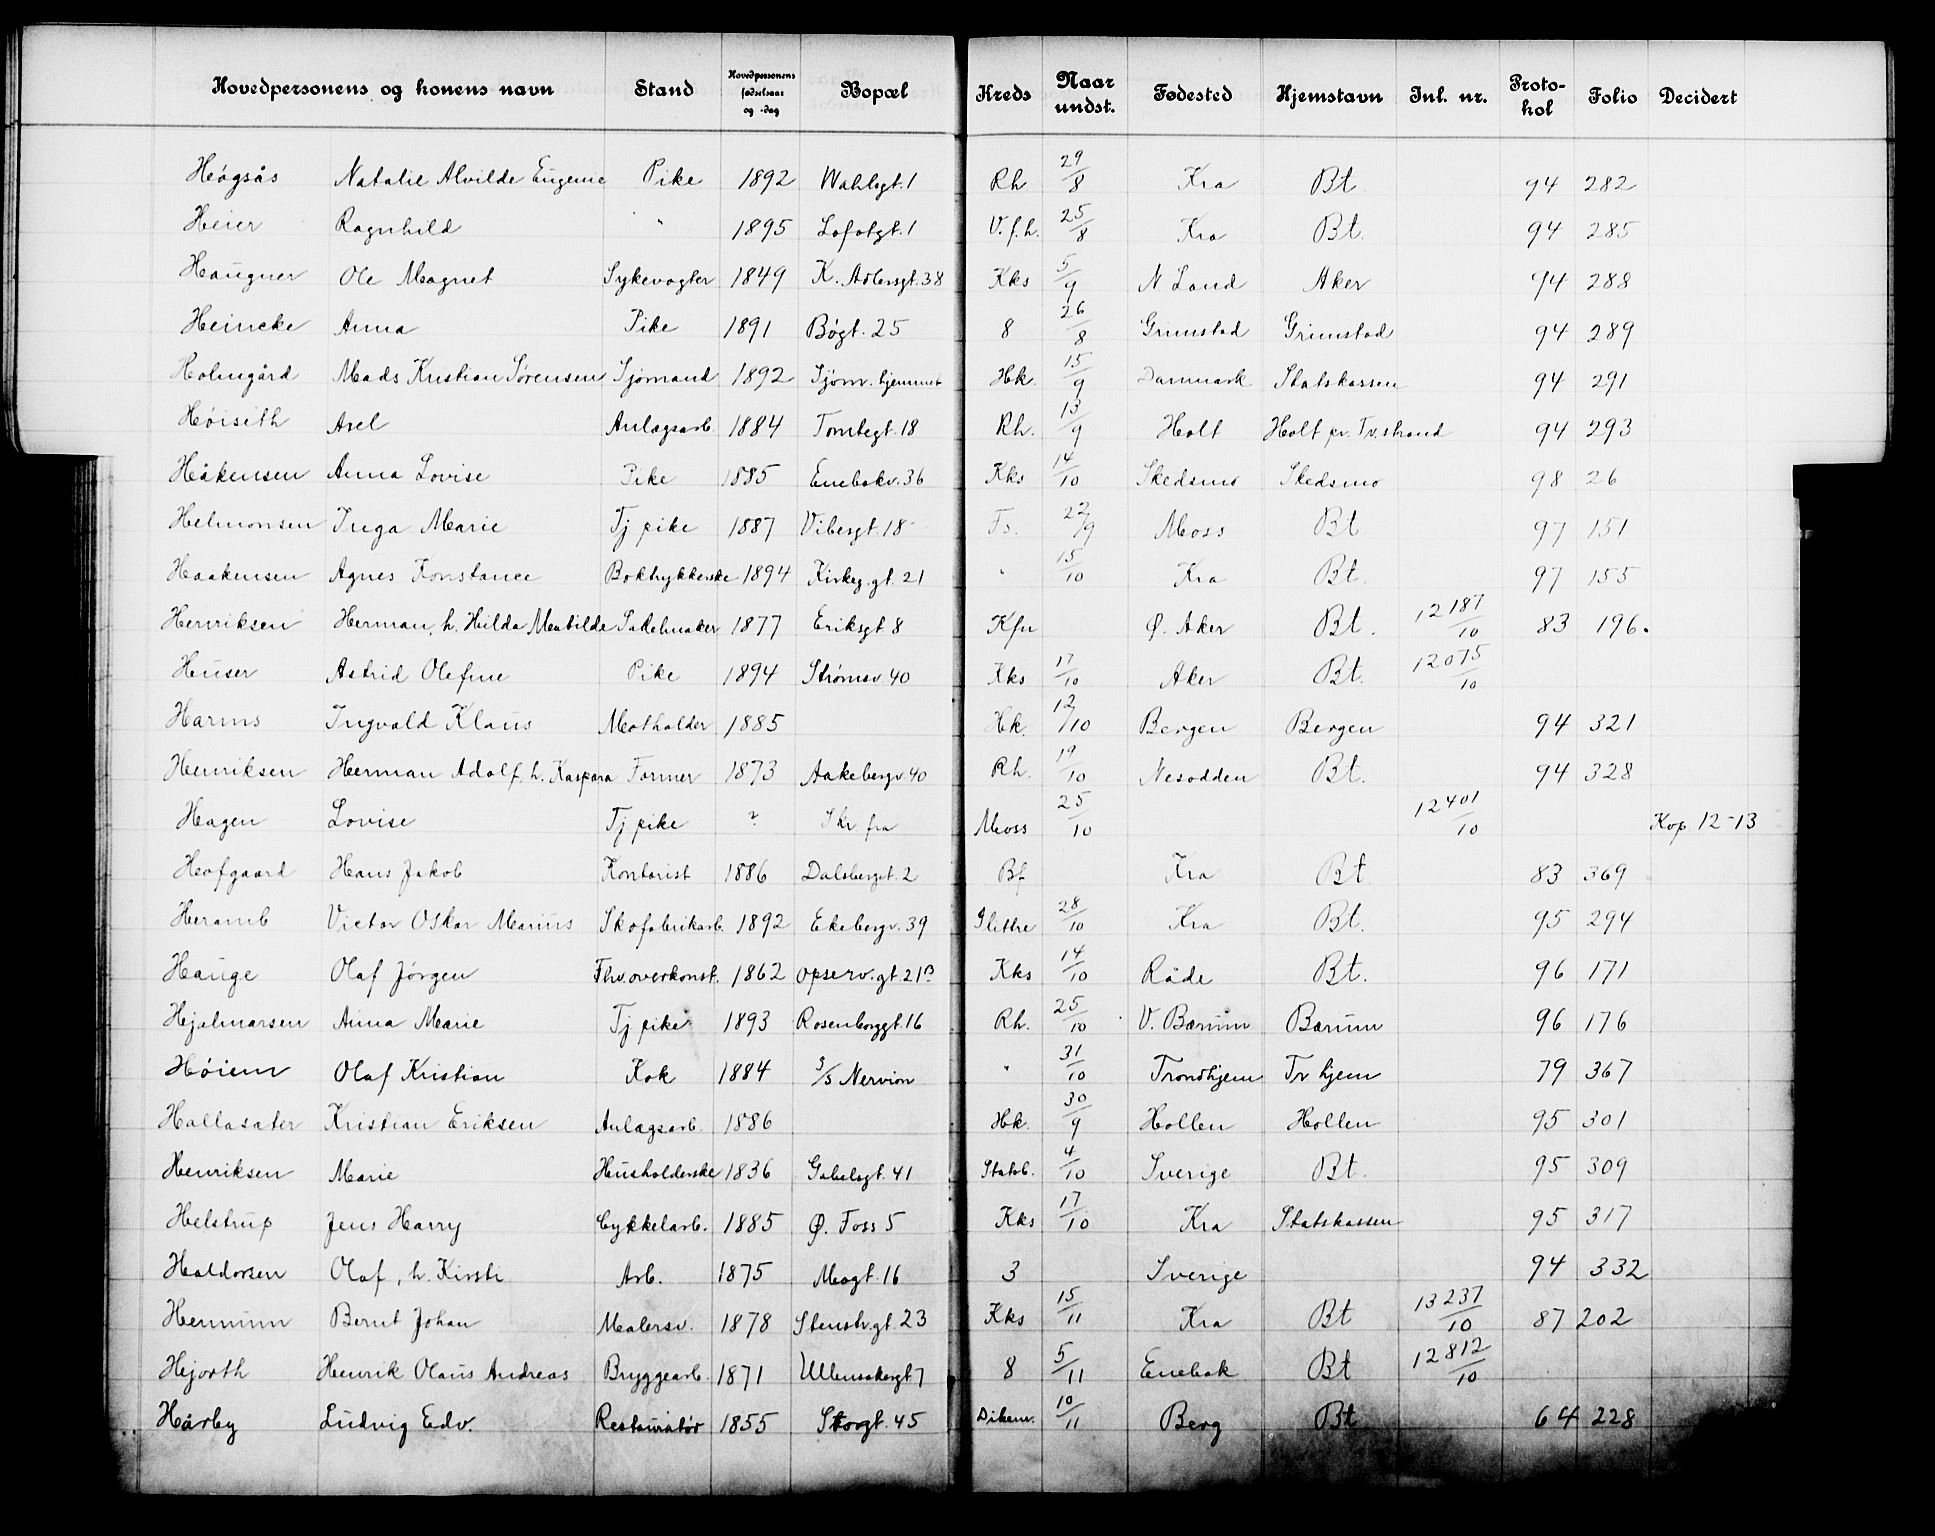 Hovedpersonens og konens navn Stand Hovedpersonens fødselsaar og -dag Bopæl Kreds Naar undst. Fødested Hjemstavn Inl. nr. Protokol Folio Decidert
Høgsås Natalie Alvilde Eugenie Pike 1892 Wahlsgt. 1 Rh 29/8 Kra Bt 94 282
Heier Ragnhild " 1895 Lofotgt. 1 V.f.h. 25/8 Kra Bt. 94 285
Haugner Ole Magnet Sykevogter 1849 K. Adlersgt. 38 Kks 5/9 N Land Aker 94 288
Heincke Anna Pike 1891 Bøgt. 25 8 26/8 Grimstad Grimstad 94 289
Holmgård Mads Kristian Sørensen Sjømand 1892 Sjøm. hjemmet Hk. 15/9 Danmark Statskassen 94 291
Høiseth Axel Anlagsarb. 1884 Tomtegt. 18 Rh. 13/9 Holt Holt pr. Tv.strand 94 293
Håkensen Anna Lovise Pike 1885 Enebakv. 36 Kks 14/10 Skedsmo Skedsmo 98 26
Helmonsen Inga Marie Tj pike 1887 Vibesgt. 18 Fs. 22/9 Moss Bt 97 151
Haakensen Agnes Konstance Boktrykkerske 1894 Kirkeg.gt. 21 " 15/10 Kra Bt. 97 155
Henriksen Herman, h. Hilda Matilde Sadelmaker 1877 Eriksgt. 8 Kfu Ø. Aker Bt. 12187/10 83 196.
Huser Astrid Olefine Pike 1894 Strømsv. 40 Kks 17/10 Aker Bt. 12075/10
Harms Ingvald Klaus Matholder 1885 Hk. 12/10 Bergen Bergen 94 321
Henriksen Herman Adolf, h. Kaspara Former 1873 Aakebergv. 40 Rh. 19/10 Nesodden Bt. 94 328
Hagen Lovise Tj pike ? Skr fra Moss 25/10 12401/10 Kop. 12-13
Hofgaard Hans Jakob Kontorist 1886 Dalsbergst. 2 Bf Kra Bt 83 369
Heramb Victor Oskar Marius Skofabrikarb. 1892 Ekebergv. 39 Slettre 28/10 Kra Bt. 95 294
Hauge Olaf Jørgen Fhv.overkonst. 1862 Opserv.gt. 21B Kks 14/10 Råde Bt. 96 171
Hjalmarsen Anna Marie Tj pike 1893 Rosenborggt. 16 Rh. 25/10 V. Bærum Bærum 96 176
Høiem Olaf Kristian Kok 1884 S/S Nervion " 31/10 Trondhjem Tr hjem 79 367
Hallasater Kristian Eriksen Anlagsarb. 1886 Hk. 30/9 Hollen Hollen 95 301
Henriksen Marie Husholderske 1836 Gabelsgt. 41 Statsb. 4/10 Sverige Bt. 95 309
Helstrup Jens Harry Cykkelarb. 1885 Ø. Foss 5 Kks 17/10 Kra Statskassen 95 317
Haldorsen Olaf, h. Kirsti Arb. 1875 Mogt. 16 3 Sverige 94 332
Hermunn Bernt Johan Malersv. 1878 Stenstr.gt. 23 Kks 15/11 Kra Bt 13237/10 87 202
Hjorth Henrik Olaus Andreas Bryggearb. 1871 Ullensakergt 7 8 5/11 Enebak Bt 12812/10
Hårby Ludvig Edv. Restauratør 1855 Storgt. 45 Dikem. 10/11 Berg Bt 64 228